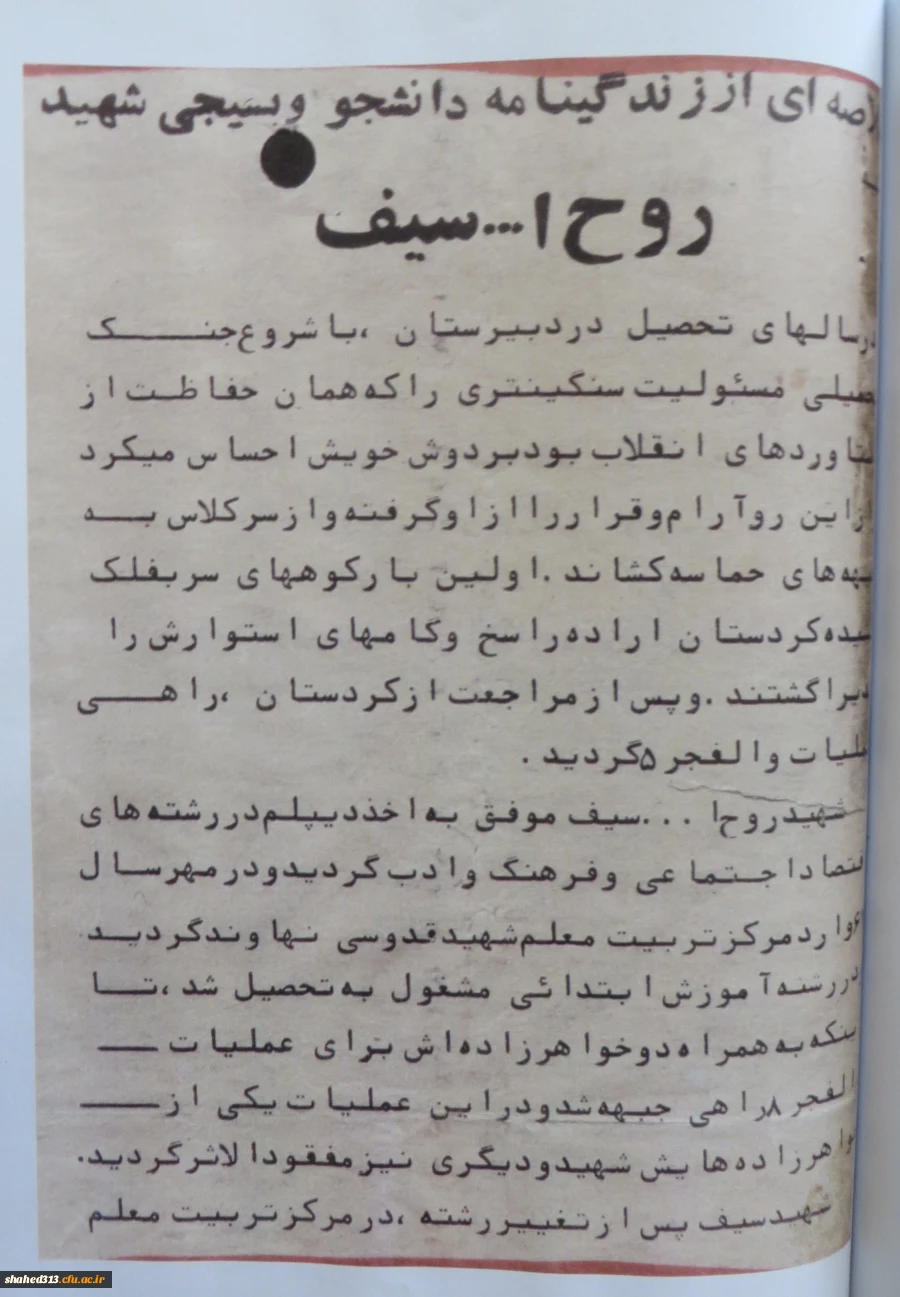 اصه ای از زندگینامه دانشجو وبسیجی شهید
روح ا...سیف
درسالهای تحصیل دردبیرستان ،باشروع جنگ
مسئولیت سنگینتری راکه همان حفاظت از
تاوردهای انقلاب بودبردوش خویش احساس میکرد
ازاین روآرام وقرارراازاوگرفته وازسرکلاس به
هه های حماسه کشاند .اولین بارکوههای سربفلک
یده کردستان اراده راسخ وگامهای استوارش را
یراگشتند .وپس ازمراجعت ازکردستان ،راهی
ملیات والفجر ۵گردید .
شهیدروح ا ...سیف موفق به اخذدیپلم دررشته های
تصاداجتماعی وفرهنگ وادب گردیدودرمهرسال
واردمرکزتربیت معلم شهیدقدوسی نهاوندگردید
دررشته آموزش ابتدائی مشغول به تحصیل شد ،تا
ینکه به همراه دوخواهرزاده اش برای عملیات
الفجر ۸راهی جبهه شدودراین عملیات یکی از
واهرزاده هایش شهیدودیگری نیزمفقودالاثرگردید.
شهیدسیف پس ازتغییررشته ،درمرکزتربیت معلم
shahed313.cfu.ac.ir